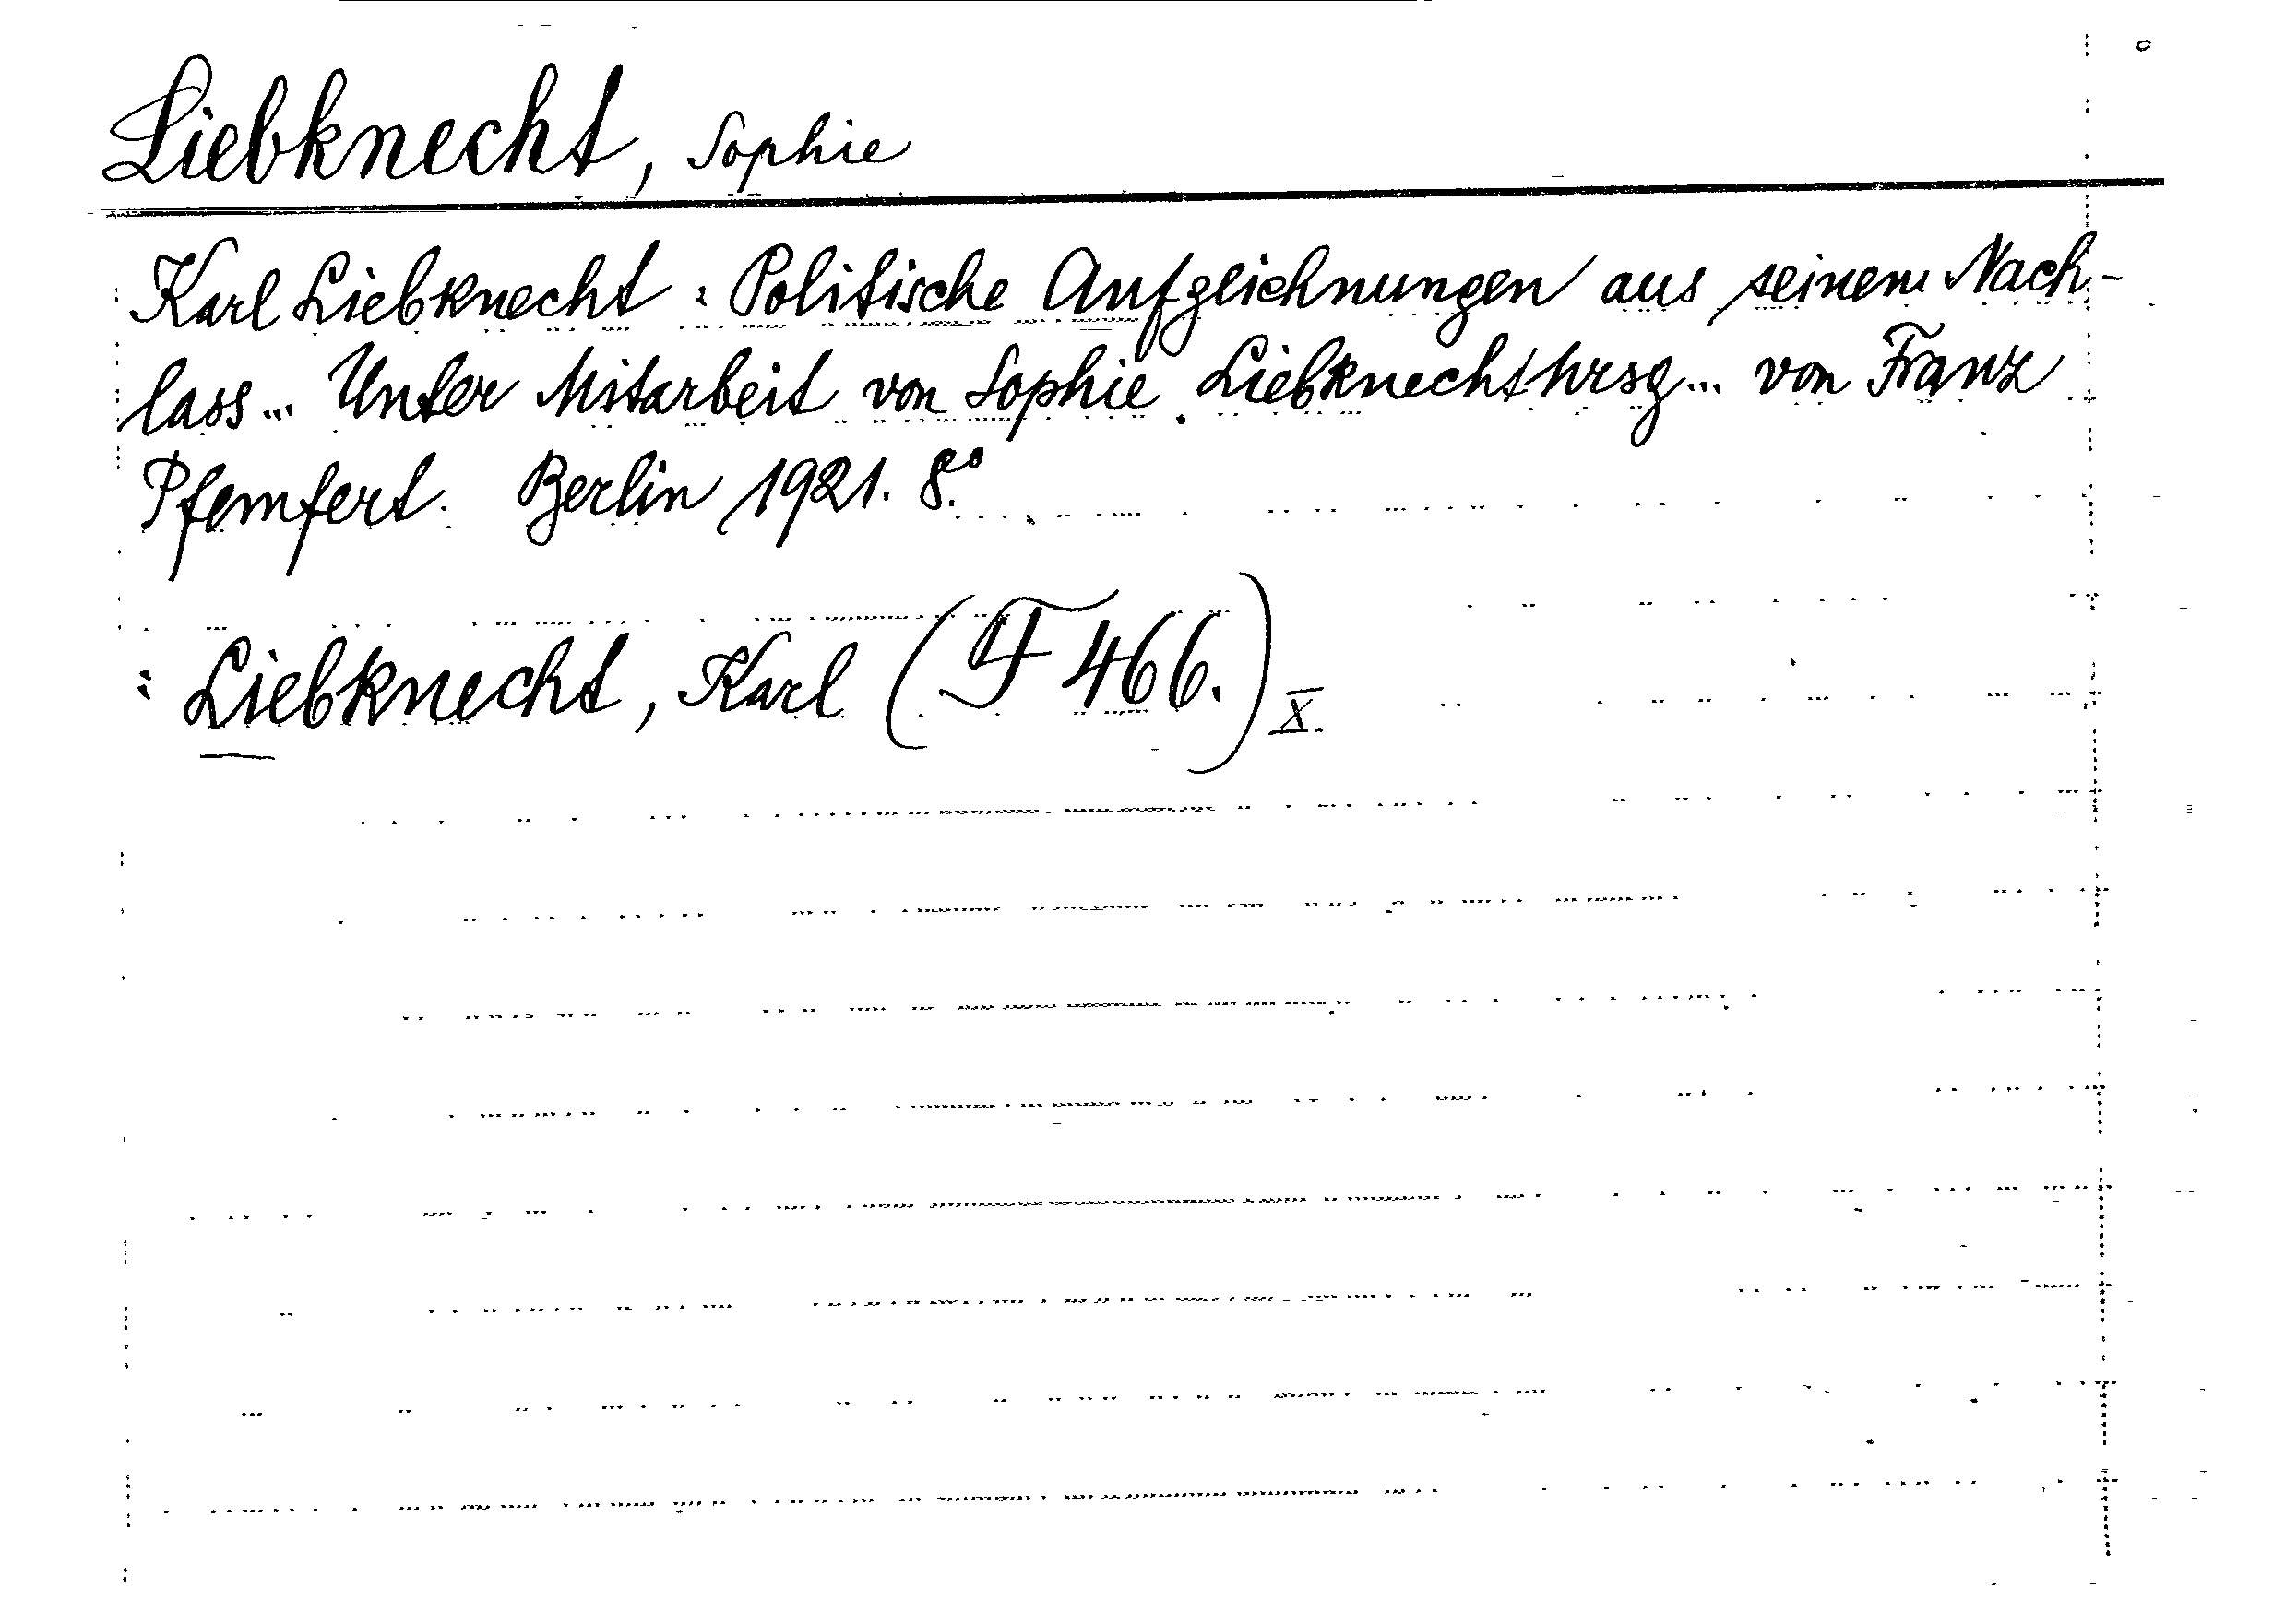 Liebknecht, Sophie
Karl Liebknecht: Politische Aufzeichnungen aus seinem Nach-
lass... Unter Mitarbeit von Sophie Liebknecht hrsg... von Franz
Pfemfert. Berlin 1921. 8.°
: Liebknecht, Karl (F 466.) X.